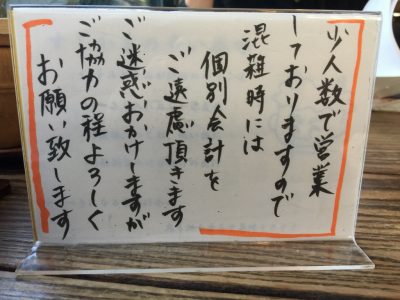 少人数で営業
しておりますので
混雑時には
個別会計を
ご遠慮頂きます
ご迷惑おかけしますが
ご協力の程よろしく
お願い致します